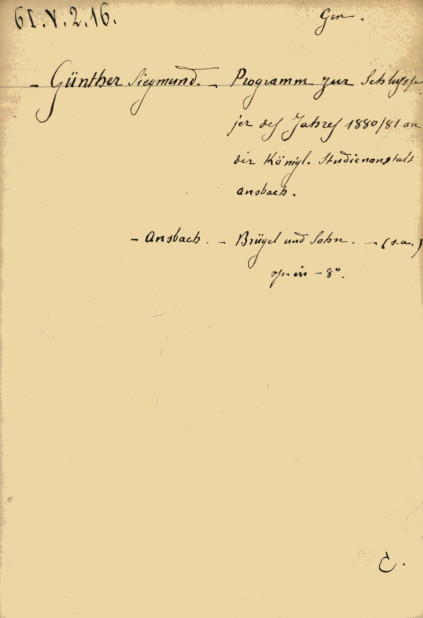 61.V.2.16.
Gen.
- Günther Siegmund. - Programm zur Schlussfe
jer des Jahres 1880/81 an
der Königl. Studienanstalt
Ansbach.
- Ansbach. - Brügel und Sohn. - (s.a.)
op. in - 8°.
C.